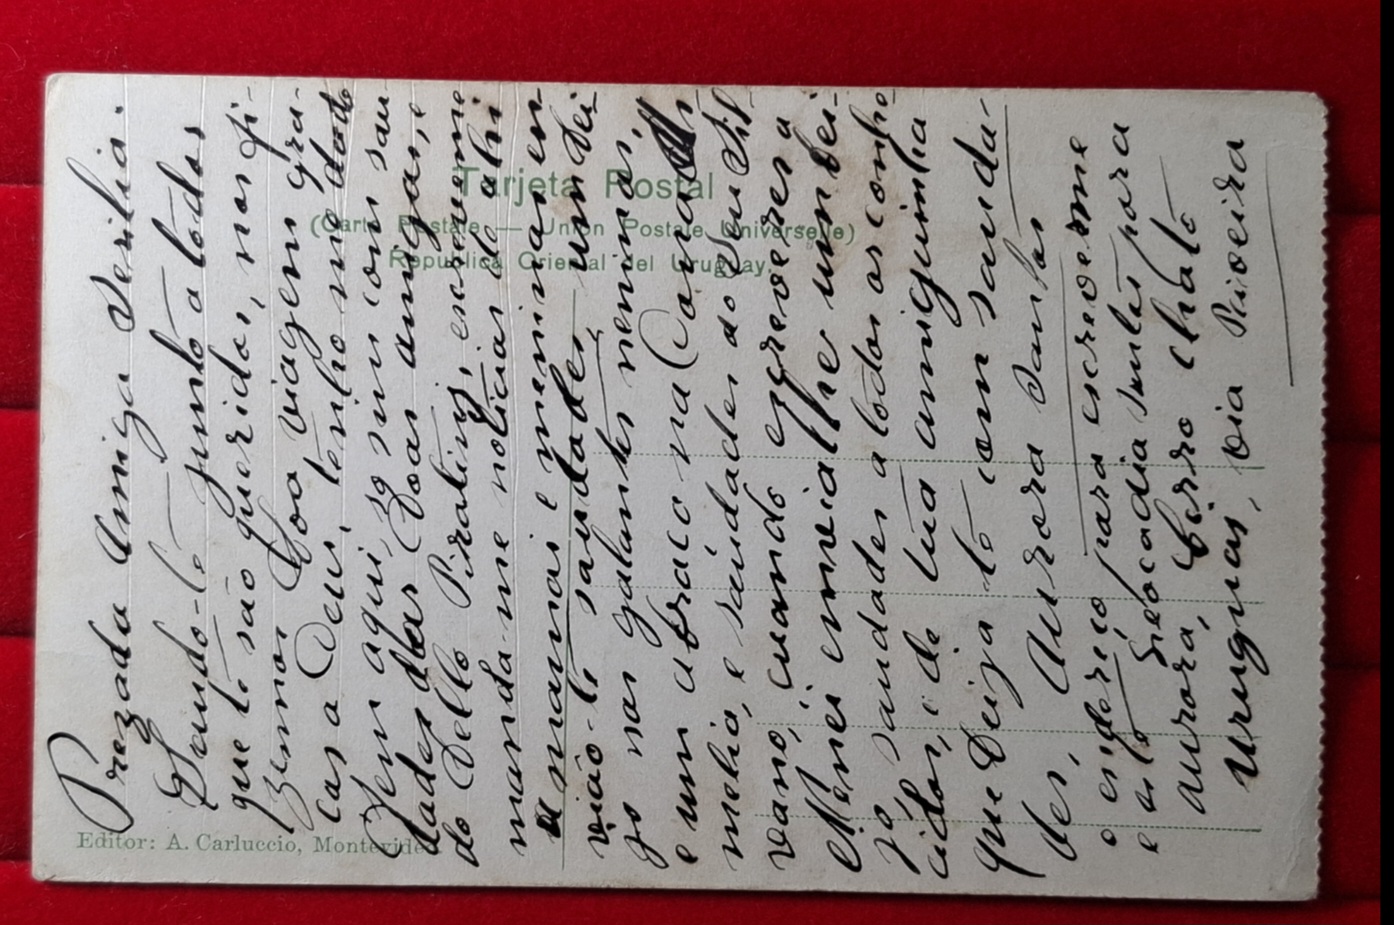 Tarjeta Postal
(Carte Postale — Union Postale Universelle)
Republica Oriental del Uruguay.
Editor: A. Carluccio, Montevideo
Prezada Amiga Serilia.
Saudo-te junto a todos
que te são queridos, nos fi-
zemos boa viagem gra-
cas a Deus, tenho me dado
bem aqui, so sim com sau-
dades das boas amigas, e
do Bello Piratiny, escreveme
manda-me noticias de ahi
a mamai e meninas en-
vião-te saudades, um bei-
jo nas galantes nenmas,
e um abraco na Cand
melia, e saudades ao Seu Sil
vano, cuando escreveres a
Meneí enviallhe um bei-
jo, saudades a todos os conhe
cidos, e de tua amiguinha
que beija-te com sauda-
des. Aurora Santos
o endereço para escreverme
e asto Leocadia Santos para
Aurora, Cerro Chato
Uruguas, via Rivera